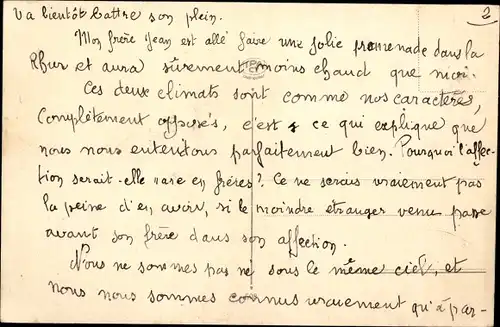 va bientôt battre son plein.
2
Mon frère Jean est allé faire une jolie promenade dans la
Rhur et aura sûrement moins chaud que moi.
Ces deux climats sont comme nos caractères,
Complètement opposés, c'est ce qui explique que
nous nous entendons parfaitement bien. Pourquoi l'affec-
tion serait-elle rare en frères? Ce ne serais vraiement pas
la peine d'en avoir, si le moindre étranger venu passe
avant son frère dans son affection.
Nous ne sommes pas né sous le même ciel, et
nous nous sommes connus vraiement qu'à par-